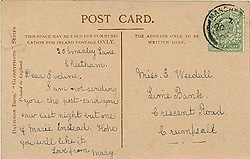 POST CARD.
THIS SPACE MAY BE USED FOR COMMUNI-
CATION FOR INLAND POSTAGE ONLY.
THE ADDRESS ONLY TO BE
WRITTEN HERE.
Lane
Cheetham.
Dear Eveline,
I am not sending
you the post-card you
saw last night but one
of Marie instead. Hope
you will like it.
Love from Mary.
Miss. E. Weedall
Lime Bank
Crescent Road
Crumpsall
MANCHES